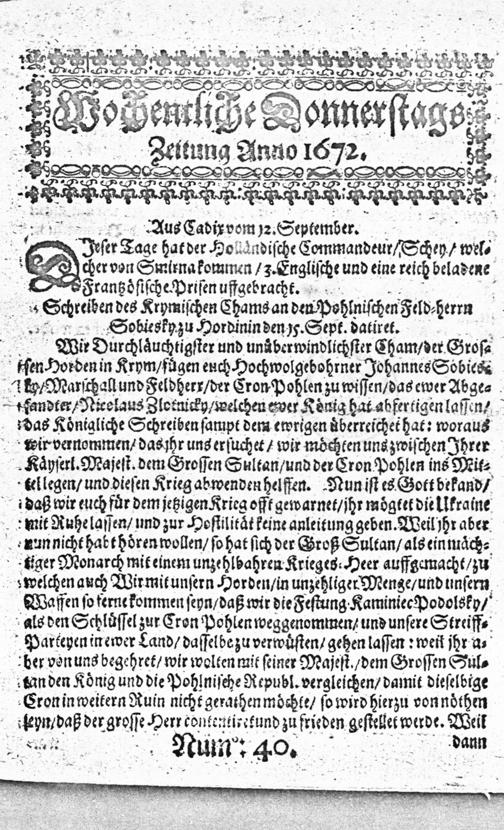 Wochentliche Donnerstags
Zeitung Anno 1672.
Aus Cadix vom 12. September.
DJeser Tage hat der Holländische Commandeur/ Schey/ wel-
cher von Smirna kommen/ 3. Englische und eine reich beladene
Frantzösische Prisen uffgebracht.
Schreiben des Krymischen Chams an den Pohlnischen Feld-herrn
Sobiesky zu Hordinin den 15. Sept. datiret.
Wir Durchläuchtigster und unüberwindlichster Cham/ der Gros-
sen Horden in Krym/ fügen euch Hochwolgebohrner Johannes Sobies-
ky/ Marschall und Feldherr/ der Cron Pohlen zu wissen/ das ewer Abge-
sandter/ Nicolaus Zlotnicky/ welchen ewer König hat abfertigen lassen/
das Königliche Schreiben sampt dem ewrigen überreichet hat: woraus
wir vernommen/ das ihr uns ersuchet/ wir möchten uns zwischen Ihrer
Käyserl. Majest. dem Grossen Sultan/ und der Cron Pohlen ins Mit-
tel legen/ und diesen Krieg abwenden helffen. Nun ist es Gott bekand/
daß wir euch für dem jetzigen Krieg offt gewarnet/ jhr mögtet die Ukraine
mit Ruhe lassen/ und zur Hostilität keine anleitung geben. Weil jhr aber
nun nicht habt hören wollen/ so hat sich der Groß Sultan/ als ein mäch-
tiger Monarch mit einem unzehlbahren Krieges-Heer auffgemacht/ zu
welchen auch Wir mit unsern Horden/ in unzehliger Menge/ und unsern
Waffen so ferne kommen seyn/ daß wir die Festung Kaminiec Podolsky/
als den Schlüssel zur Cron Pohlen weggenommen/ und unsere Streiff-
Parteyen in ewer Land/ dasselbe zu verwüsten/ gehen lassen: weil jhr a-
ber von uns begehret/ wir wolten mit seiner Majest./ dem Grossen Sul-
tan den König und die Pohlnische Republ. vergleichen/ damit dieselbige
Cron in weitern Ruin nicht gerathen möchte/ so wird hierzu von nöthen
seyn/ daß der grosse Herr contentiret und zu frieden gestellet werde. Weil
dann
Num°: 40.